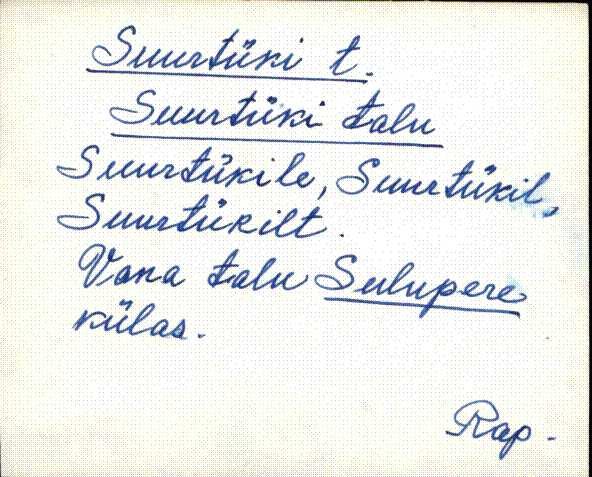 Suurtüki t.
Suurtüki talu
Suurtükile, Suurtükil,
Suurtükilt.
Vana talu Sulupere
külas.
Rap.